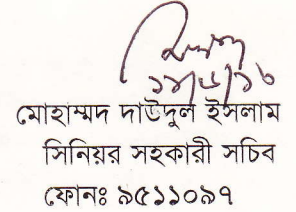 মোহাম্মদ দাউদুল ইসলাম
সিনিয়র সহকারী সচিব
ফোনঃ ৯৫১১০৯৭